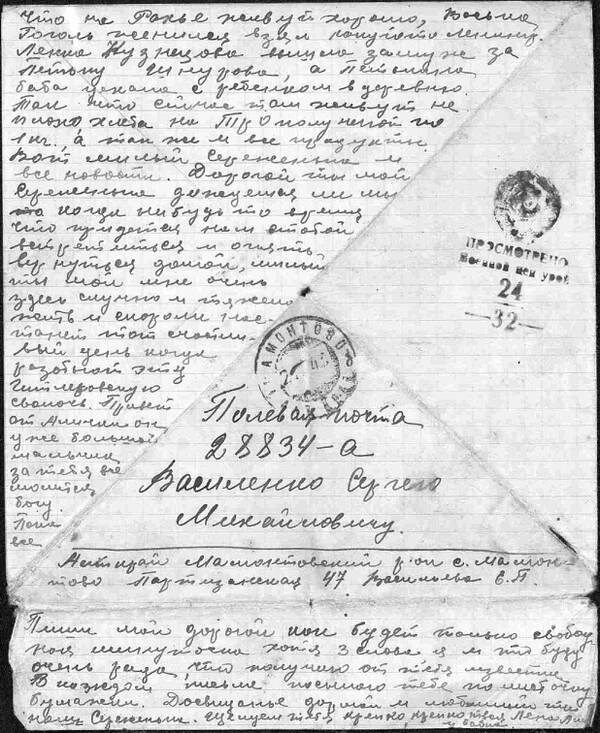 Что на Ганье живут хорошо, Коська
Гоголь женился взял
Ленка Кузнецова вышла замуж за
Петьку Шнурова, а Петькина
баба уехала с ребенком в деревню.
Так что сейчас там живут не
плохо хлеба на получной по
1 кг., а так же и все продукты.
Вот милый Сереженька и
все новости. Дорогой ты мой
Сереженька дождемся ли мы
когда нибудь то время
что придется нам с тобой
встретиться и опять
вернуться домой, милый
ты мой мне очень
здесь скучно и тяжело
жить и скоро ли нас-
танет тот счастли-
вый день когда
разобьют эту
гитлеровскую
сволочь. Привет
от Алички он
уже большой
мальчик
за тебя все
молится
богу.
Пока
все
ПРОСМОТРЕНО
Военной Цензурой
24
—32—
МАМОНТОВО
Полевая почта
28834-а
Василенко Сергею
Михайловичу.
Алткрай Мамонтовский р-он с. Мамон-
тово Партизанская 47 Васильева Е.П.
Пиши мой дорогой как будет только свобод
ная минуточка хотя 3 слова я и то буду
очень рада, что получаю от тебя известие
В каждом письме посылаю тебе по листочку
бумажки. Досвиданье дорогой и любимый ты
наш Сереженька. Целуем тебя крепко крепко твоя Лена
и бабка